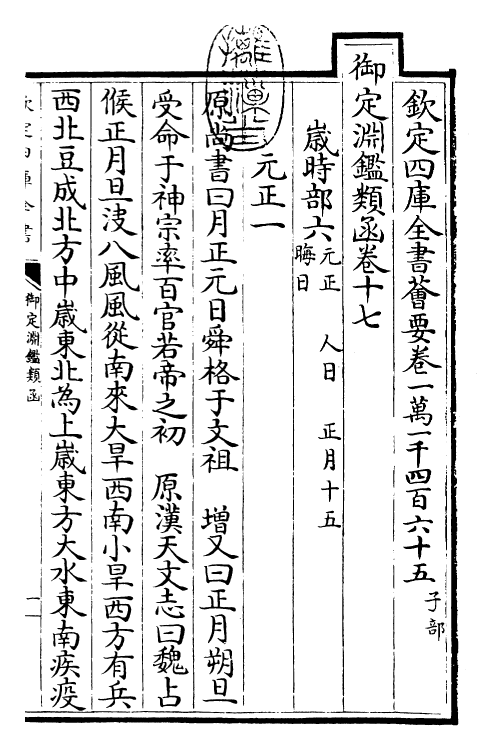 欽定四庫全書薈要卷一萬一千四百六十五 子部
御定淵鑑類函卷十七
歲時部六 元正 人日 正月十五
晦日
元正一
原尚書曰月正元日舜格于文祖 增又曰正月朔旦
受命于神宗率百官若帝之初 原漢天文志曰魏占
候正月旦决八風風從南來大旱西南小旱西方有兵
西北豆成北方中嵗東北為上嵗東方大水東南疾疫
欽定四庫全書
御定淵鑑類函
一